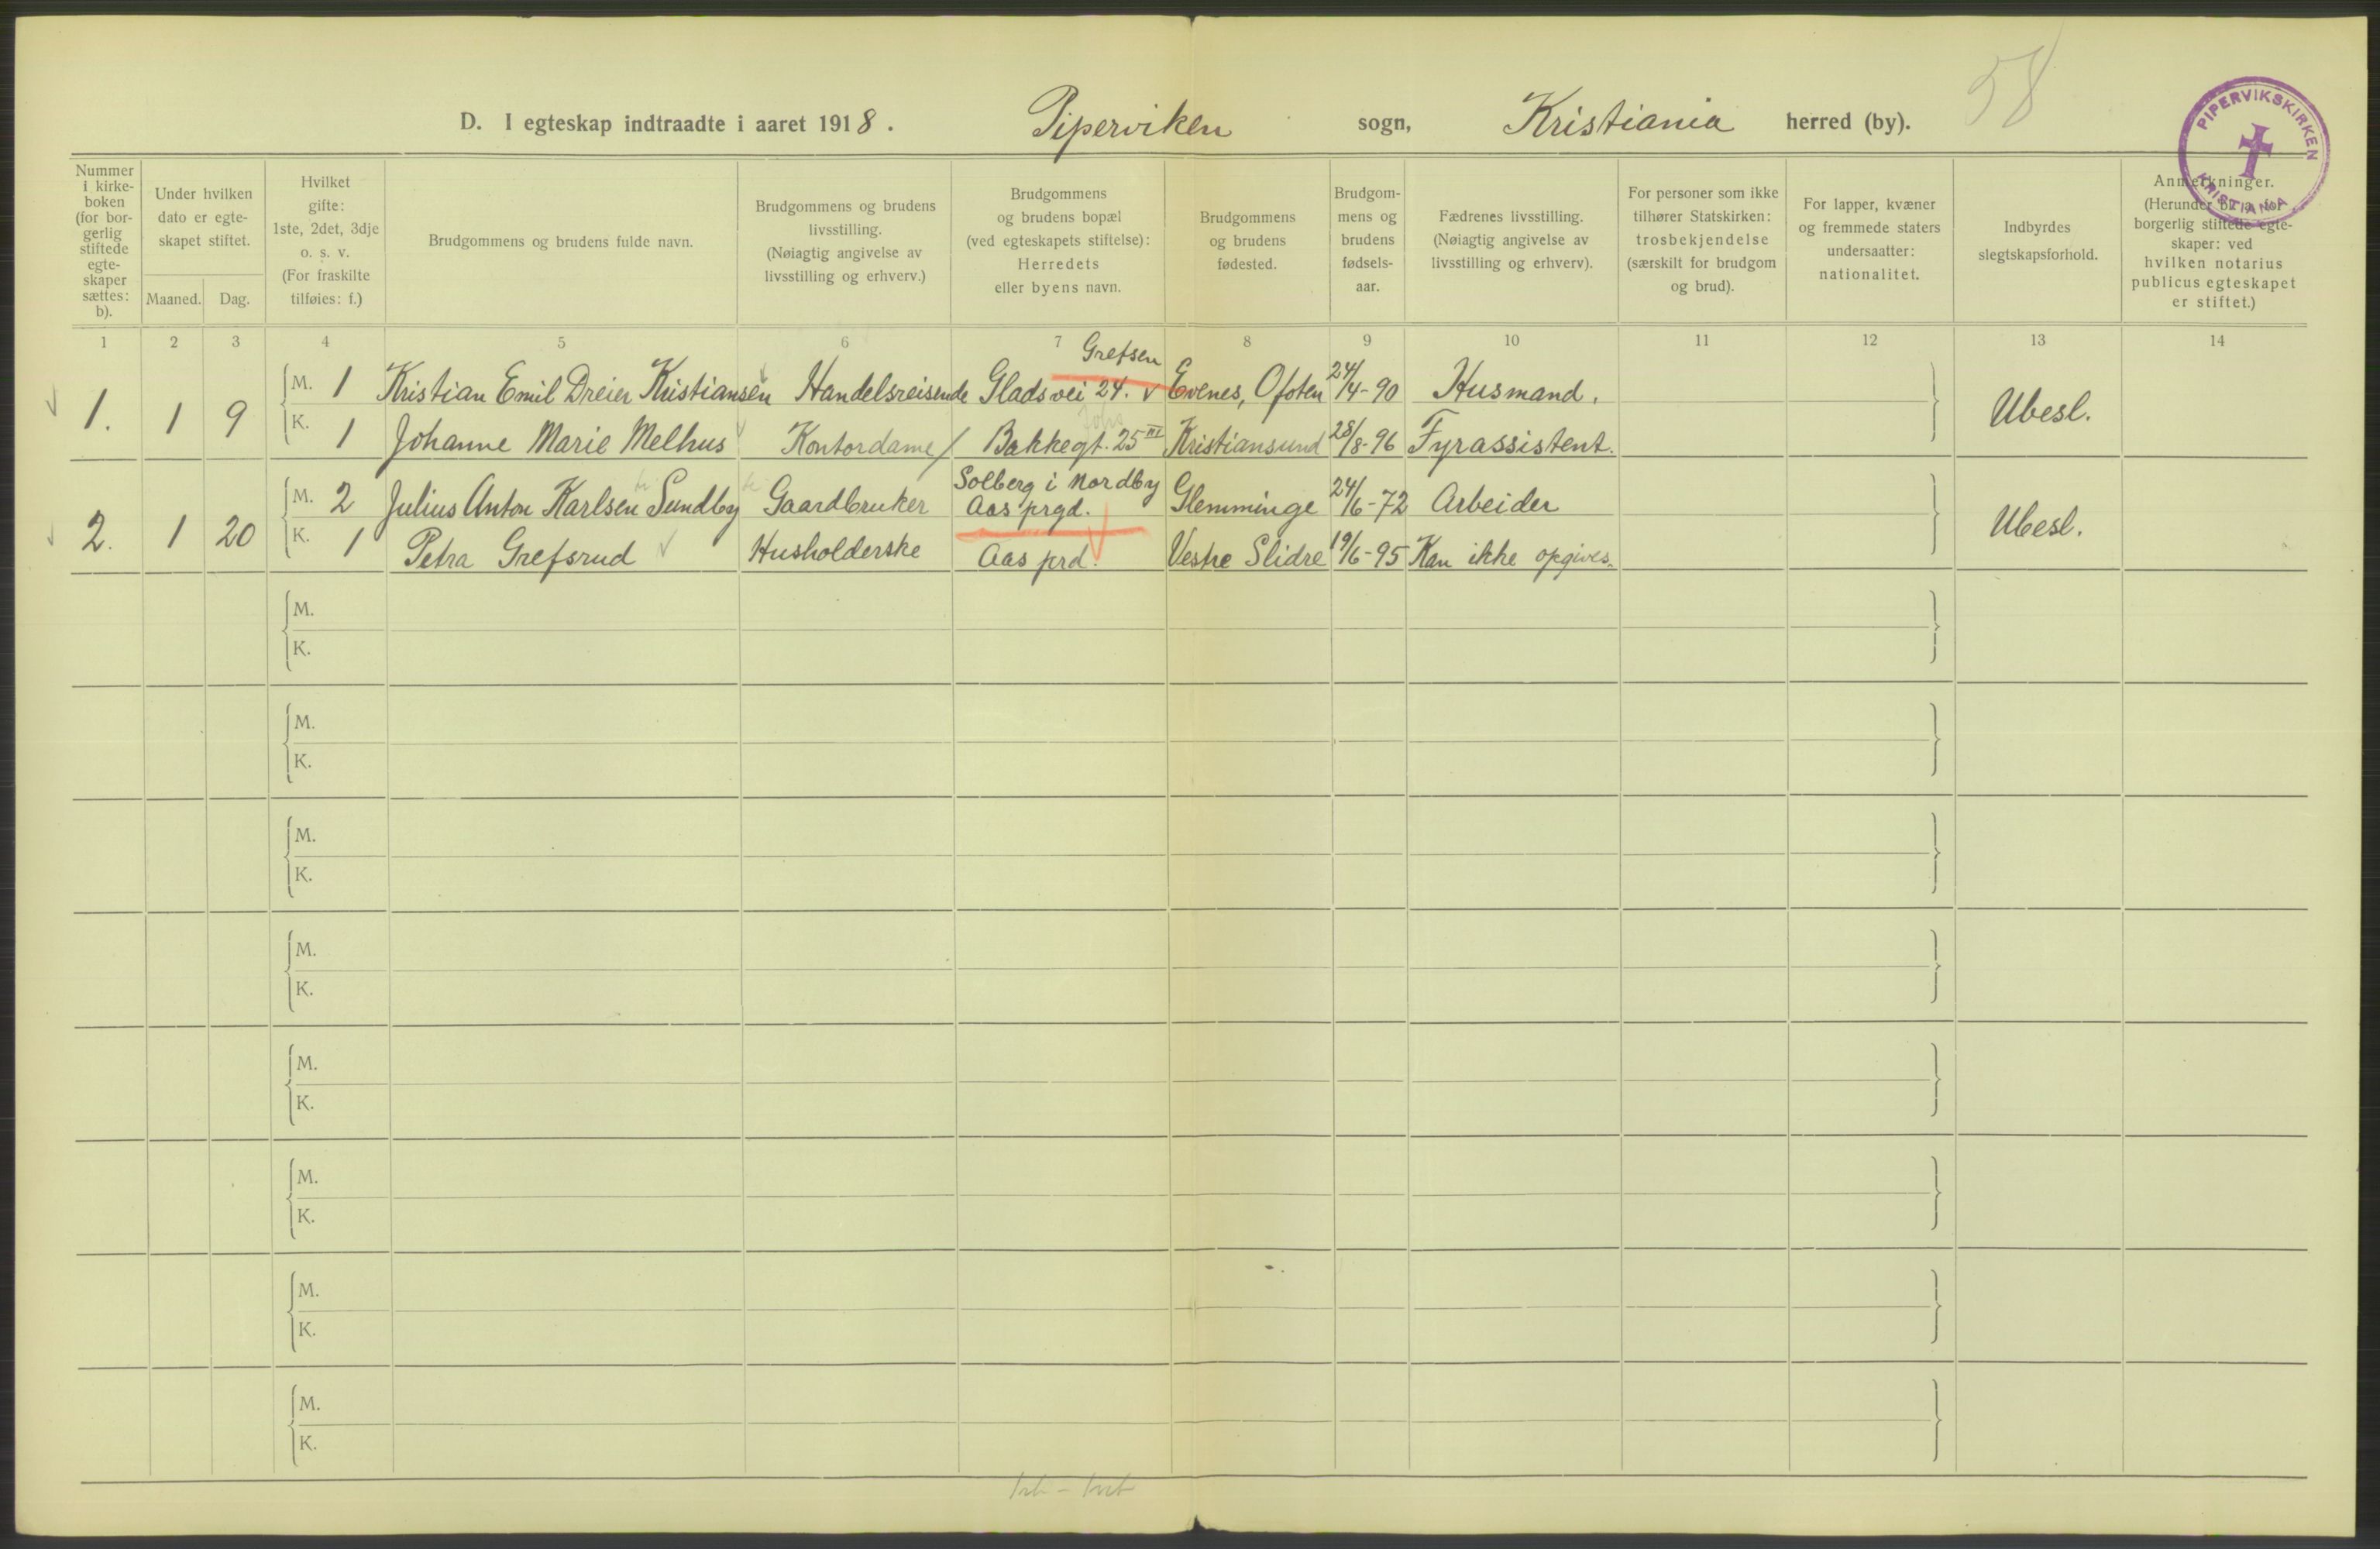 58
D. I egteskap indtraadte i aaret 1918. Piperviken sogn, Kristiania herred (by).
PIPERVIKSKIRKEN
KRISTIANIA
Nummer i kirke-boken (for bor-gerlig stiftede egte-skaper sættes: b).
Under hvilken dato er egte-skapet stiftet.
Maaned. Dag.
Hvilket gifte: 1ste, 2det, 3dje o. s. v. (For fraskilte tilføies: f.)
Brudgommens og brudens fulde navn.
Brudgommens og brudens livsstilling. (Nøiagtig angivelse av livsstilling og erhverv.)
Brudgommens og brudens bopæl (ved egteskapets stiftelse): Herredets eller byens navn.
Brudgommens og brudens fødested.
Brudgom-mens og brudens fødsels-aar.
Fædrenes livsstilling. (Nøiagtig angivelse av livsstilling og erhverv).
For personer som ikke tilhører Statskirken: trosbekjendelse (særskilt for brudgom og brud).
For lapper, kvæner og fremmede staters undersaatter: nationalitet.
Indbyrdes slegtskapsforhold.
Anmerkninger. (Herunder bl. a. for borgerlig stiftede egte-skaper: ved hvilken notarius publicus egteskapet er stiftet.)
1 2 3 4 5 6 7 8 9 10 11 12 13 14
Grefsen
1. 1 9 M. 1 Kristian Emil Dreier Kristiansen Handelsreisende Gladsvei 24. Evenes, Ofoten 24/4-90 Husmand. Ubesl.
K. 1 Johanne Marie Melhus Kontordame Bakkegt. 25 III Kristiansund 28/8-96 Fyrassistent.
Solberg i Nordby
2. 1 20 M. 2 Julius Anton Karlsen Sundby Gaardbruker Aas prgd. Glemminge 24/6-72 Arbeider Ubesl.
K. 1 Petra Grefsrud Husholderske Aas prd. Vestre Slidre 19/6-95 Kan ikke opgives.
M.
K.
M.
K.
M.
K.
M.
K.
M.
K.
M.
K.
M.
K.
M.
K.